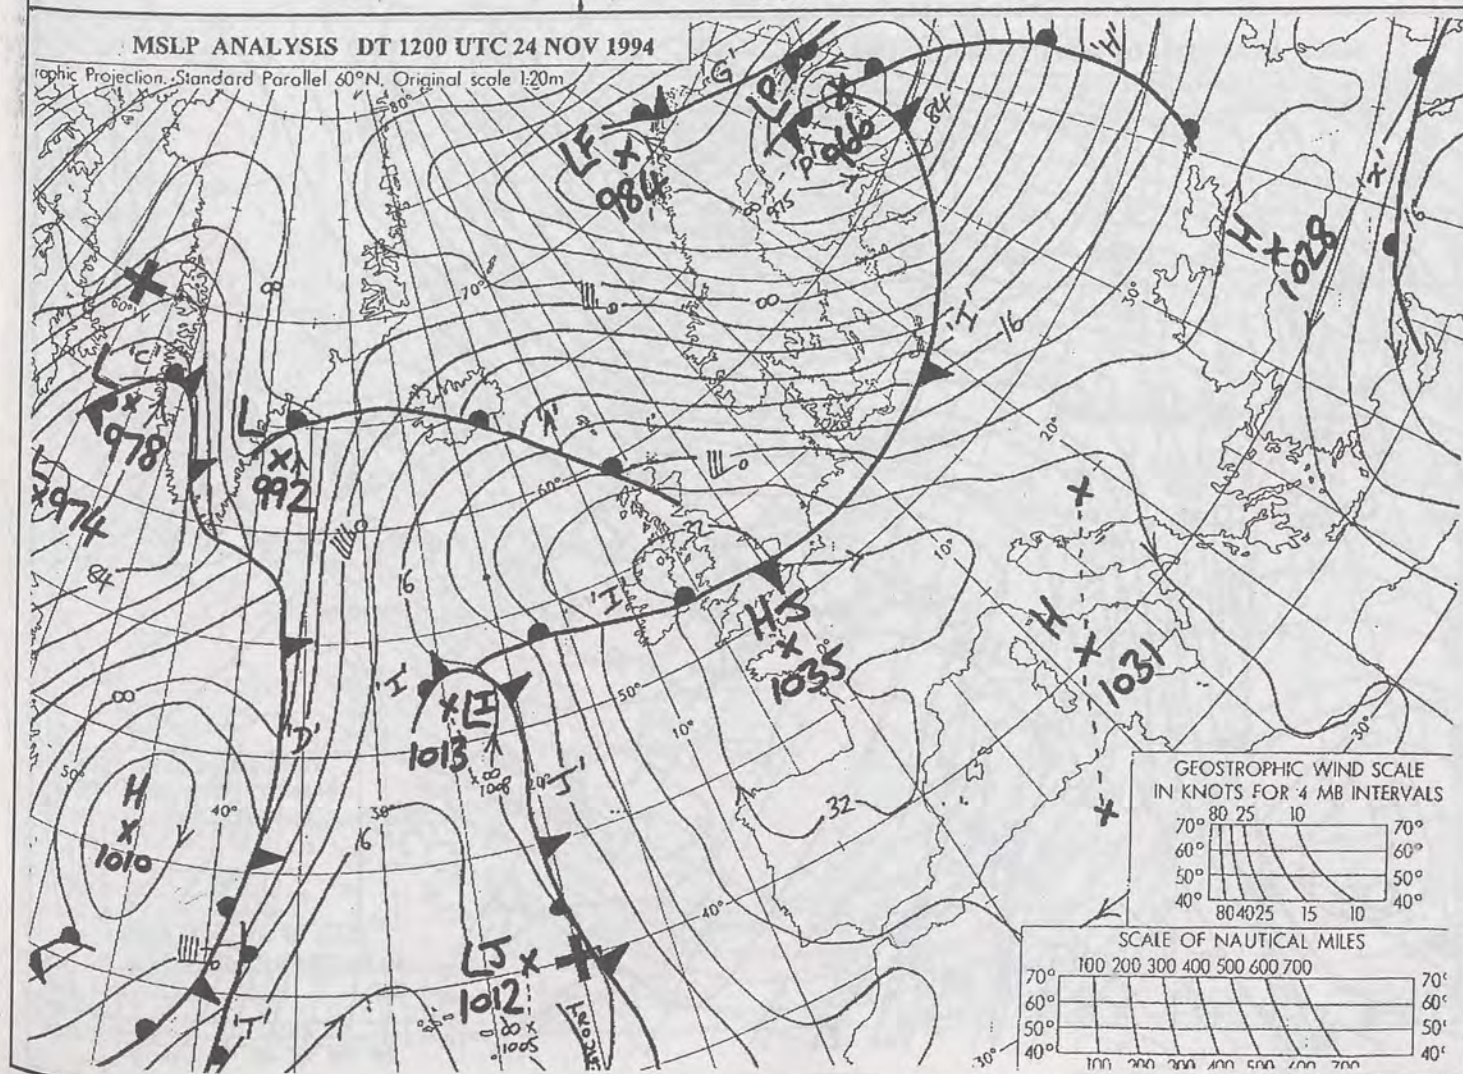 MSLP ANALYSIS DT 1200 UTC 24 NOV 1994
rophic Projection. Standard Parallel 60°N, Original scale 1:20m
80°
'G'
LP
X
966
'P'
975
84
'H'
LF
X
984
'X'
H
X
1028
16
X
60°
L
'C'
X
978
8
70°
8
0
00
'I'
16
30°
20°
L
X
992
X974
84
0
'A'
60°
0
X
10°
16
'I'
HJ
X
1035
0°
H
X
1031
30°
'I'
X LI
1013
00
1008
20°
'J'
50°
10°
'D'
00
50°
H
X
1010
40°
30°
16
32
40°
X
LJ X
1012
00 X
1005
FRONT
0
'T'
30°
GEOSTROPHIC WIND SCALE
IN KNOTS FOR 4 MB INTERVALS
80 25 10
70° 70°
60° 60°
50° 50°
40° 40°
80 40 25 15 10
SCALE OF NAUTICAL MILES
100 200 300 400 500 600 700
70° 70°
60° 60°
50° 50°
40° 40°
100 200 300 400 500 600 700